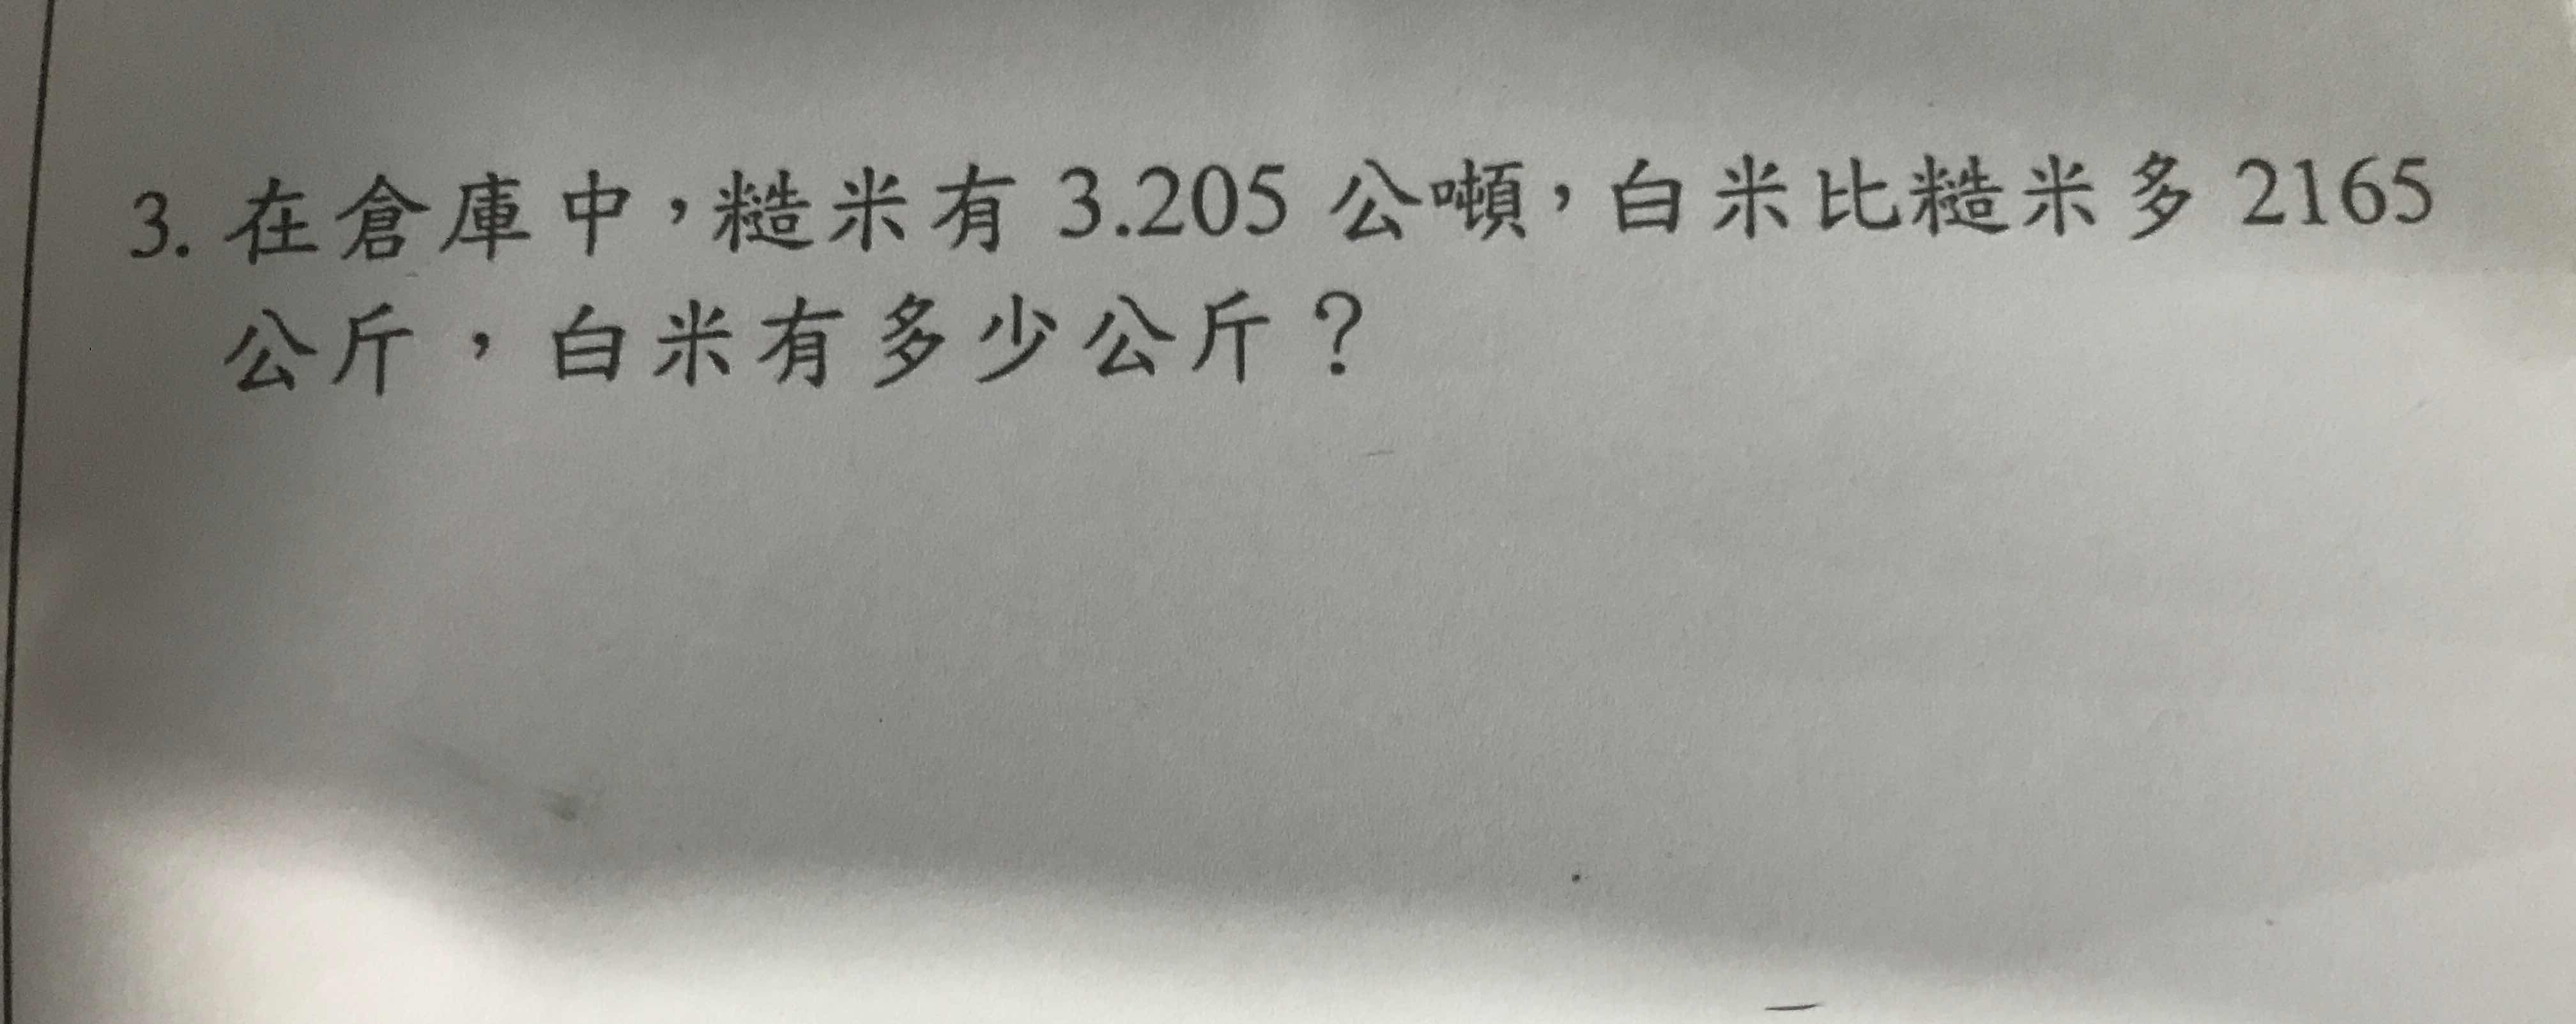 3. 在倉庫中，糙米有 3.205 公噸，白米比糙米多 2165
公斤，白米有多少公斤？